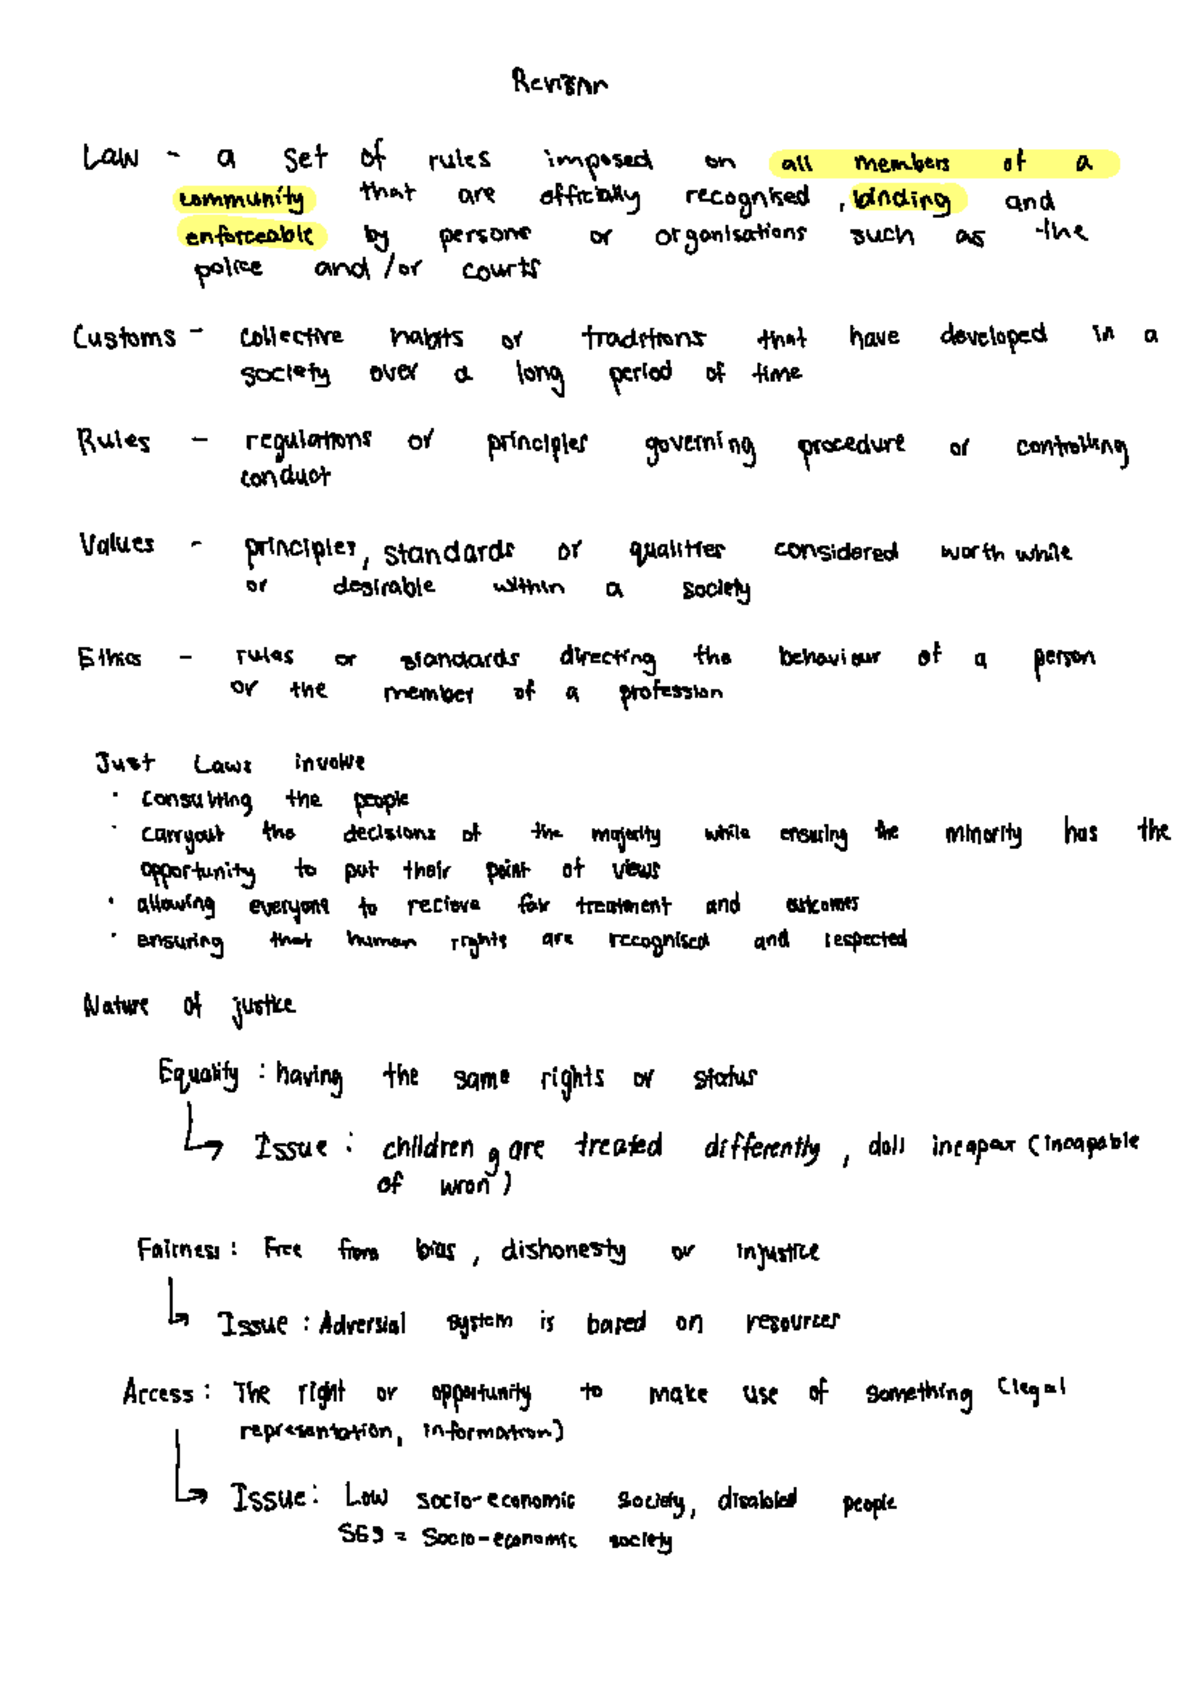 Revision
Law - a set of rules imposed on all members of a
community that are officially recognised, binding and
enforceable by persons or organisations such as the
police and/or courts
Customs - collective habits or traditions that have developed in a
society over a long period of time
Rules - regulations or principles governing procedure or controlling
conduct
Values - principles, standards or qualities considered worth while
or desirable within a society
Ethics - rules or standards directing the behaviour of a person
or the member of a profession
Just Laws involve
• consulting the people
• carryout the decisions of the majority while ensuring the minority has the
opportunity to put their point of views
• allowing everyone to recieve fair treatment and outcomes
• ensuring that human rights are recognised and respected
Nature of justice
Equality : having the same rights or status
↳ Issue : children are treated differently, doli incapax (incapable
of wrong)
Fairness : Free from bias, dishonesty or injustice
↳ Issue : Adversial system is based on resources
Access : The right or opportunity to make use of something (legal
representation, information)
↳ Issue : Low socio-economic society, disabled people
SES = Socio-economic society